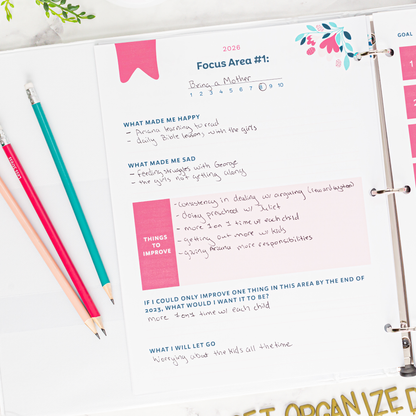 2026
Focus Area #1:
Being a Mother
1 2 3 4 5 6 7 8 9 10
WHAT MADE ME HAPPY
- Ariana learning to read
- daily Bible lessons with the girls
WHAT MADE ME SAD
- feeding struggles with George
- the girls not getting along
THINGS
TO
IMPROVE
- consistency in dealing w/ arguing (reward system)
- doing preschool w/ Juliet
- more 1 on 1 time w/ each child
- getting out more w/ kids
- giving Ariana more responsibilities
IF I COULD ONLY IMPROVE ONE THING IN THIS AREA BY THE END OF
2023, WHAT WOULD I WANT IT TO BE?
more 1 on 1 time w/ each child
WHAT I WILL LET GO
Worrying about the kids all the time
GOAL
1
ORGANIZE